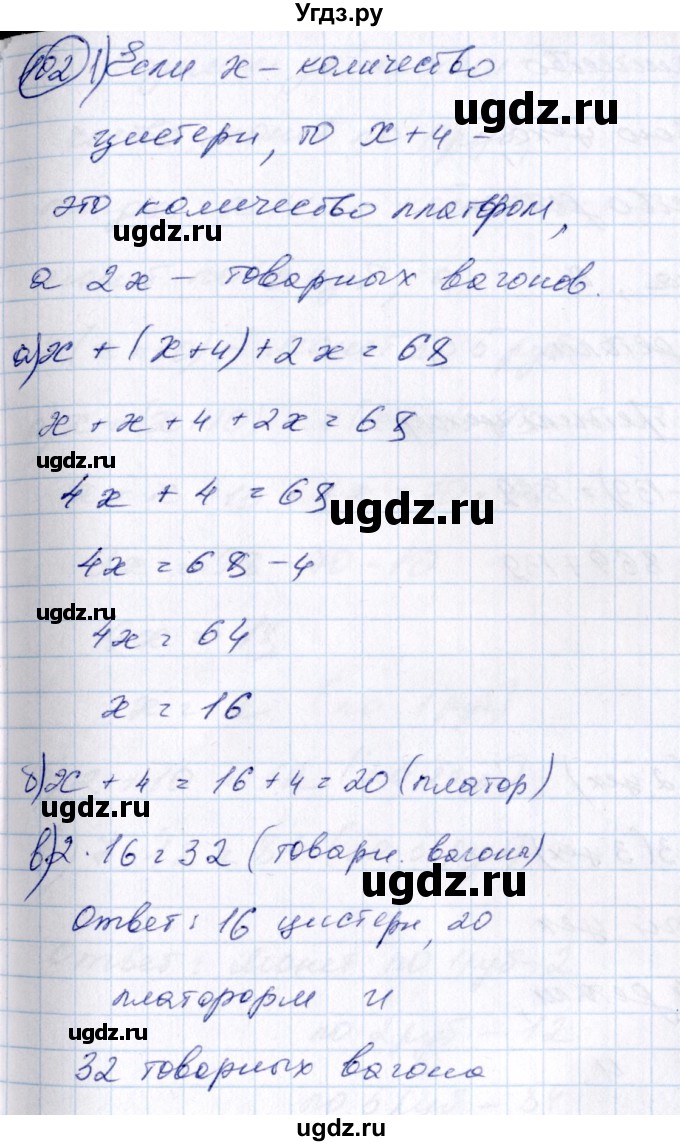 Угдз.ру
102 1) Если x – количество
цистерн, то x+4 –
это количество платформ,
ugdz.ru
ugdz.ru
а 2x – товарных вагонов.
а) x + (x+4) + 2x = 68
x + x + 4 + 2x = 68
ugdz.ru
4x + 4 = 68
ugdz.ru
4x = 68 – 4
ugdz.ru
4x = 64
x = 16
б) x + 4 = 16 + 4 = 20 (платфор)
ugdz.ru
в) 2 · 16 = 32 (товарн. вагоны)
ugdz.ru
Ответ: 16 цистерн, 20
платформ и
ugdz.ru
32 товарных вагона
ugdz.ru